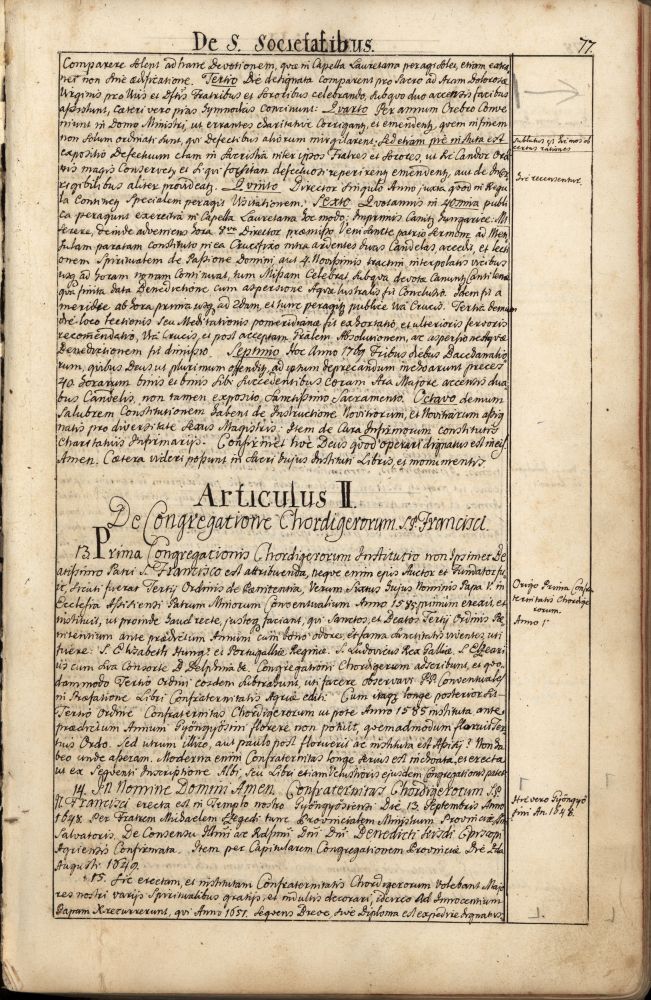 De S. Societatibus.
77.
Comparere solent ad hanc Devotionem, quæ in Capella Lauretana peragi solet, etiam
net non sine ædificatione. Tertio Die designata comparent pro Sacro ad Aram Dolorosæ
Virginis pro Vivis et Dfctis Fratribus et Sororibus celebrando, subquo duo accensis facibus
assistunt, cæteri vero pias Hymnodias concinunt: Quarto Per annum Crebro Conve
niunt in Domo Ministri, ut errantes charitative corrigant, et emendent, quem in finem
non solum ordinati sunt, qui Defectibus aliorum invigilarent, sed etiam pie instituta est
expositio Defectuum clam in Sacristia inter ipsos Fratres et Sorores, ut sic Candor Ordi
nis magis conservet et si qui forsitan defectuosi reperirent emendent, aut de
rigibilibus aliter provideat. Quinto Director singulis Annis juxta quod in Regu
la continet Specialem peragit Visitationem. Sexto Quotannis in 40ma publi
ca peragunt exercitia in Capella Lauretana hoc modo: Imprimis Canit Hungarice: Mi
serere, deinde adveniens hora 8va Director præmisso Veni Sancte patrio Sermone ad Men
sulam paratam constituto in ea Crucifixo intra ardentes duas Candelas accedit, et lecti
onem Spiritualem de Passione Domini, aut 4. Novissimis tractim interpolatis vicibus
usq ad horam nonam Continuat, tum Missam Celebrat subqua devota canunt Cantilenæ
qua finita data Benedictione cum aspersione Aquæ lustralis fit Conclusio. Idem fit a
meridie ab hora prima usq ad 2dam, et tunc peragit publice Via Crucis. Tertia demum
die loco lectionis seu Meditationis pomeridianæ fit exhortatio, et ulterioris fervoris
recomendatio, Via Crucis, et post acceptam Gralem Absolutionem, ac aspersionem aquæ
Benedictionem fit dimissio. Septimo Hoc Anno 1769 Tribus diebus Bacchanalio
rum, quibus Deus ut plurimum offenditur, ad eptum deprecandum inchoarunt preces
40 horarum binis et binis sibi succedentibus coram Ara Majore accensis dua
bus Candelis, non tamen exposito Sanctissimo Sacramento. Octavo demum
Salubrem Constitutionem habent de Instructione Novitiorum, et Novitiarum assig
natis pro diversitate Sexus Magistris: Item de Cura Infirmorum constitutis
Charitativis Infirmarijs. Confirmet hoc Deus quod operari dignatus est in eis.
Amen. Cætera videri possunt in Sacri hujus Instituti Libris, et monumentis.
Sublatus est hic mos ob
certas rationes
Hic recensentur.
Articulus II.
De Congregatione Chordigerorum S.P. Francisci.
13. Prima Congregationis Chordigerorum Institutio non ipsimet Be
atissimo Patri S. Francisco est attribuenda, neque enim ejus Auctor et Fundator fu
it, sicuti fuerat Tertij Ordinis de Pænitentia, Verum Sixtus hujus Nominis Papa V. in
Ecclesia Assisiensi Patrum Minorum Conventualium Anno 1585 primum erexit, et
instituit, ut proinde haud recte, justeq faciant, qui Sanctos, et Beatos Tertij Ordinis Pæ
nitentium ante prædictum Annum cum bono odore, et fama Sanctitatis viventes, uti
fuere: S. Elisabeth Hung. et Portugalliæ Reginæ. S. Ludovicus Rex Galliæ. S. Elzeari
us cum sua Consorte B. Delphina &c. Congregationi Chordigerum adscribunt, et quo
dammodo Tertio Ordini eosdem subtrahunt, uti facere observavi PP. Conventuales
in Præfatione Libri Confraternitatis Agriæ editi. Cum itaq longe posterior sit
Tertio Ordine Confraternitas Chordigerorum ut pote Anno 1585 instituta ante
prædictum Annum Gyöngyösini florere non potuit, quemadmodum floruit Ter
tius Ordo. Sed utrum illico, aut paulo post floruerit ac instituta est Assisij? Non ha
beo unde asseram. Moderna enim Confraternitas longe serius est inchoata, et erecta
ut ex Sequenti Inscriptione Albi, seu Libri etiam Vetustioris ejusdem Congregationis patet
14. In Nomine Domini Amen. Confraternitas Chordigerorum S.P.
N. Francisci erecta est in Templo nostro Gyöngyösiensi Die 13. Septembris Anno
1648. Per Fratrem Michaelem Szegedi tunc Provincialem Ministrum Provinciæ S
Salvatoris. De Consensu Illmi ac Rdssmi Dni Dni Benedicti Kisdi Episcopi
Agriensis Confirmata. Item per Capitularem Congregationem Provinciæ Die
Augusti 1649.
15. Sic erectam, et institutam Confraternitatis Chordigerorum volebant Majo
res nostri varijs Spiritualibus gratijs, et indultis decorari, idcirco Ad Innocentium
Papam X recurrerunt, qui Anno 1651. sequens Breve, sive Diploma est expedire dignatus.
Origo Prima Confra
ternitatis Chordige
rorum.
Anno 1
Hic vero Gyöngyö
sini An. 1648.